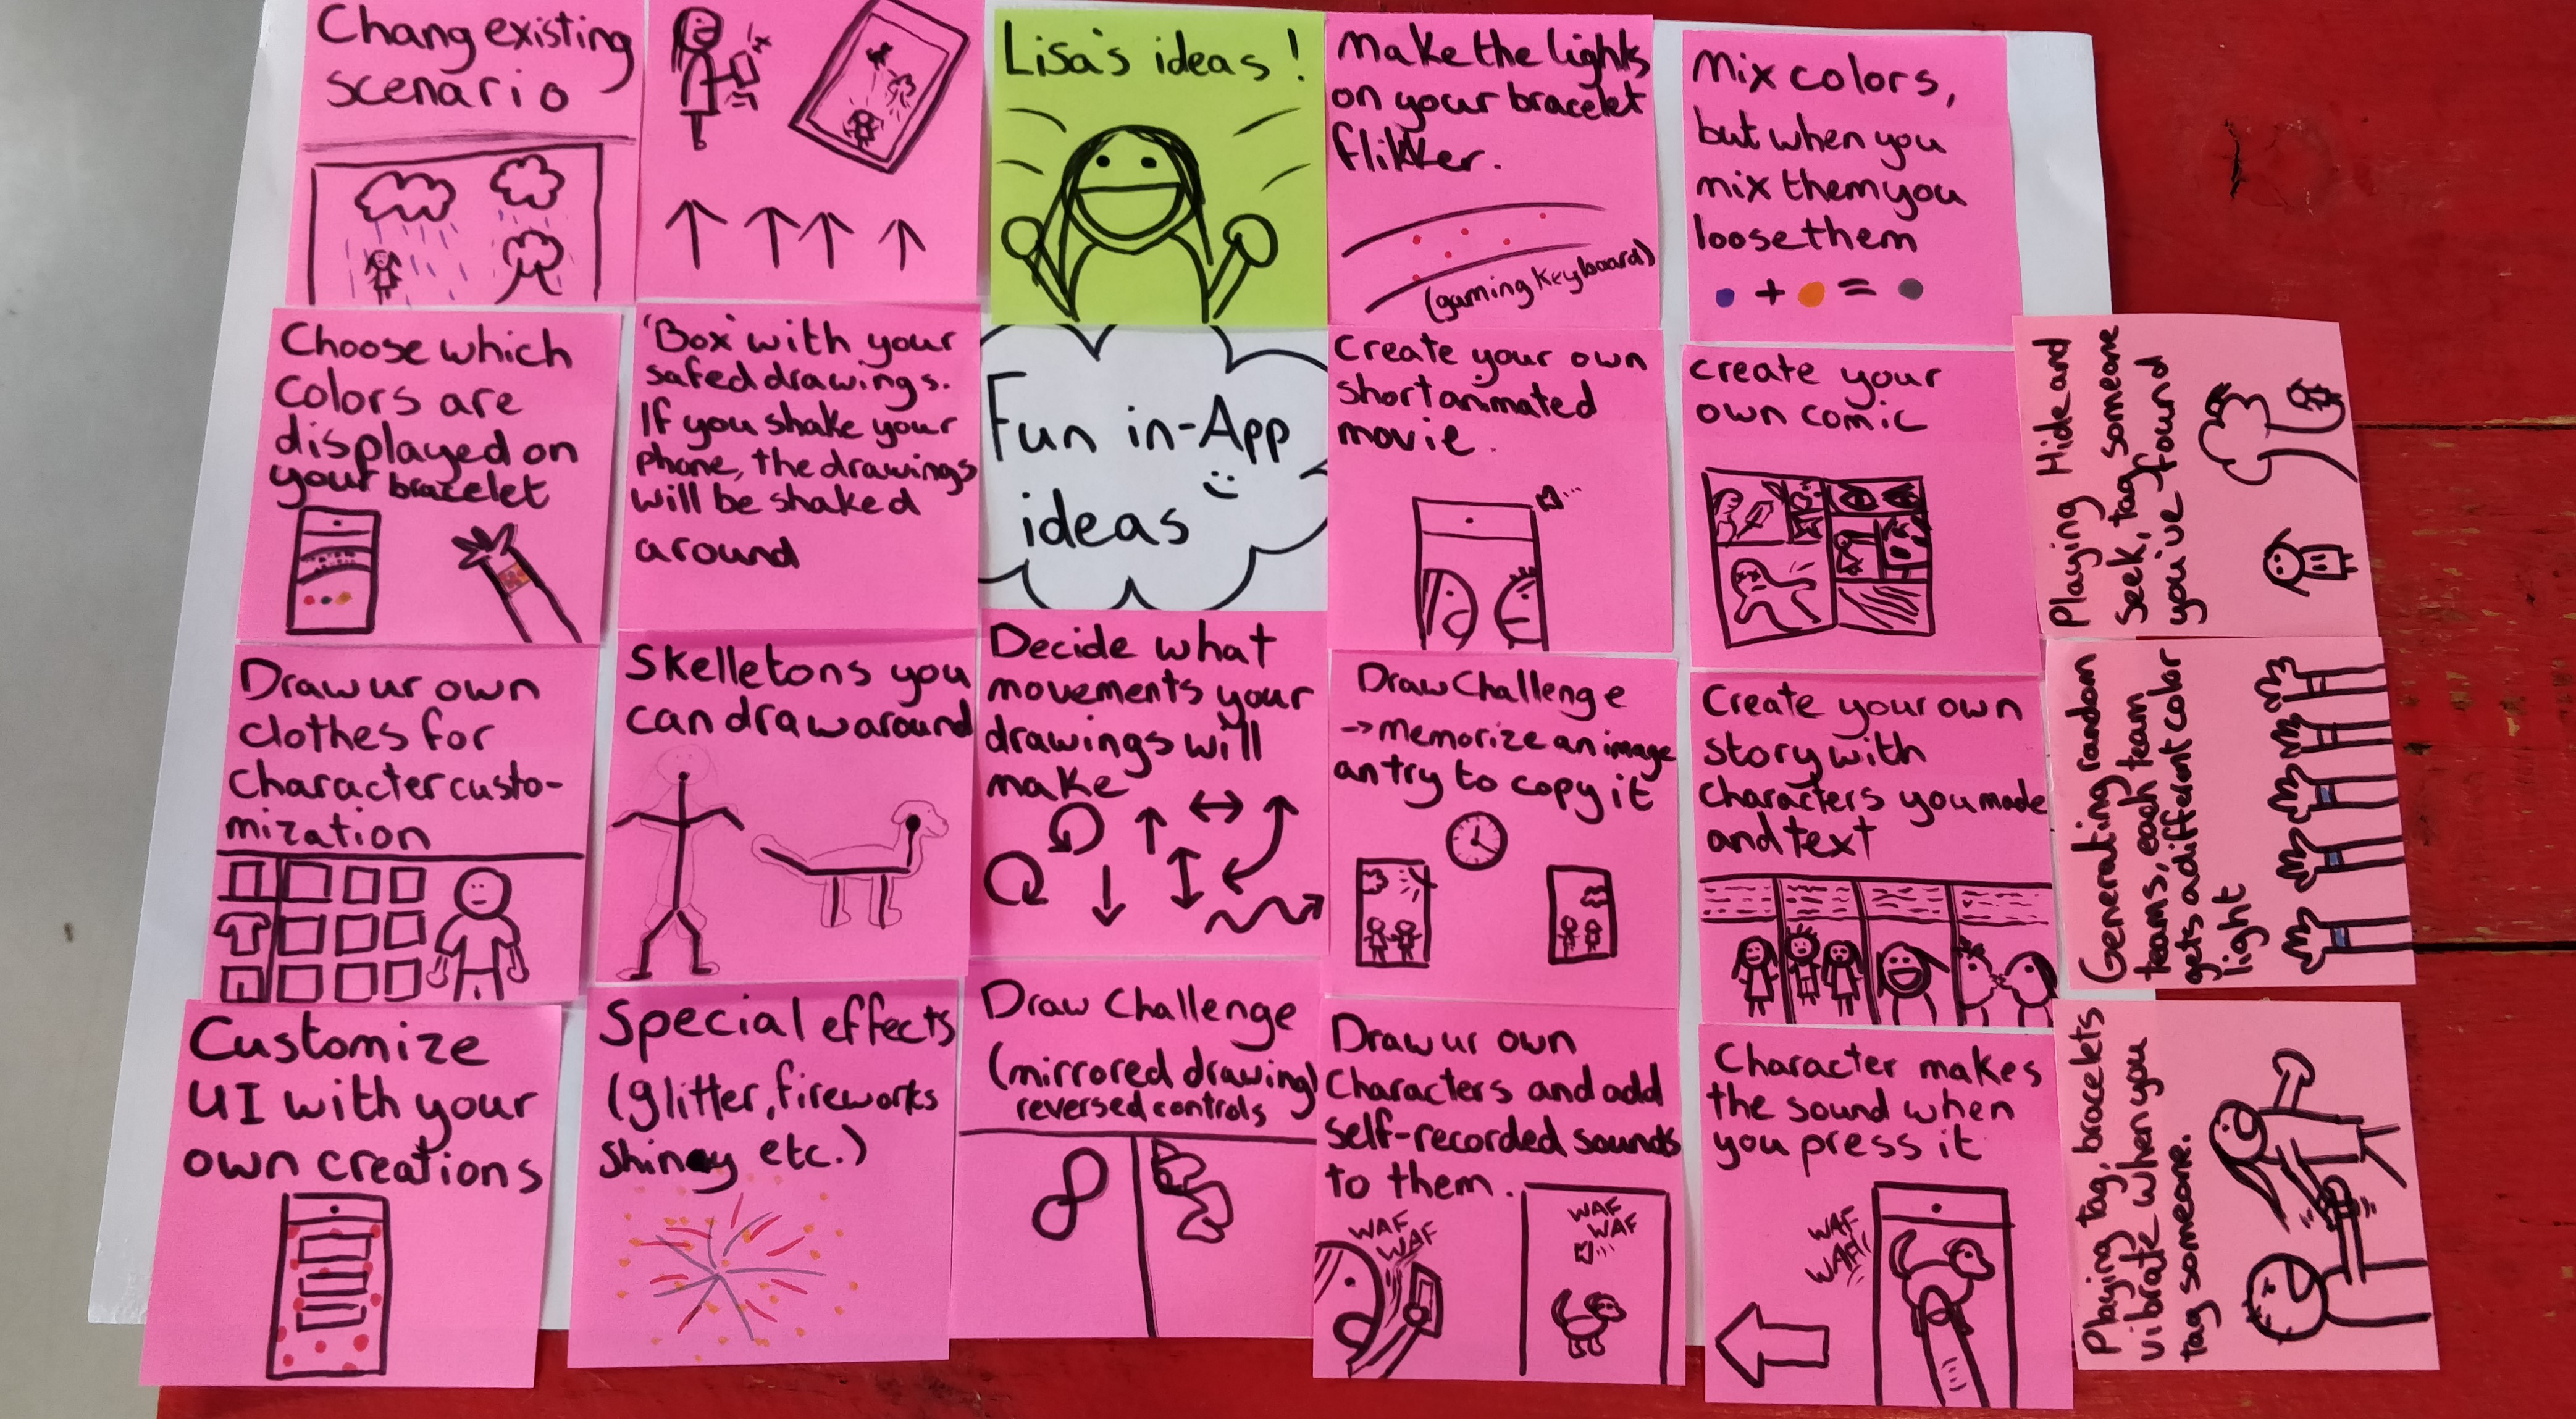 Chang existing
scenario
Lisa's ideas!
Make the lights
on your bracelet
flikker.
(gaming keyboard)
Mix colors,
but when you
mix them you
loose them
+ =
Choose which
colors are
displayed on
your bracelet
'Box' with your
safed drawings.
If you shake your
phone, the drawings
will be shaked
around
Fun in-App
ideas
Create your own
short animated
movie.
create your
own comic
Playing Hide and
Seek, tag someone
you've found
Draw ur own
clothes for
character custo-
mization
Skelletons you
can draw around
Decide what
movements your
drawings will
make
Draw Challenge
→ Memorize an image
an try to copy it
Create your own
story with
characters you made
and text
Generating random
teams, each team
gets a different color
light
Customize
UI with your
own creations
Special effects
(glitter, fireworks
shiny etc.)
Draw Challenge
(mirrored drawing)
reversed controls
Draw ur own
Characters and add
self-recorded sounds
to them.
WAF
WAF
WAF
WAF
Character makes
the sound when
you press it
WAF
WAF
Playing tag, bracelets
vibrate when you
tag someone.